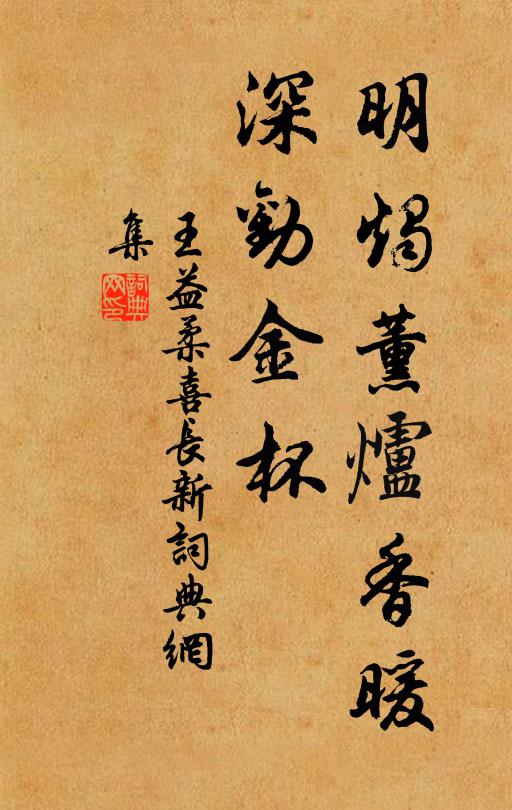 明燭薰爐香暖
深勸金杯
王益柔喜長新詞典網
集
詞典網印